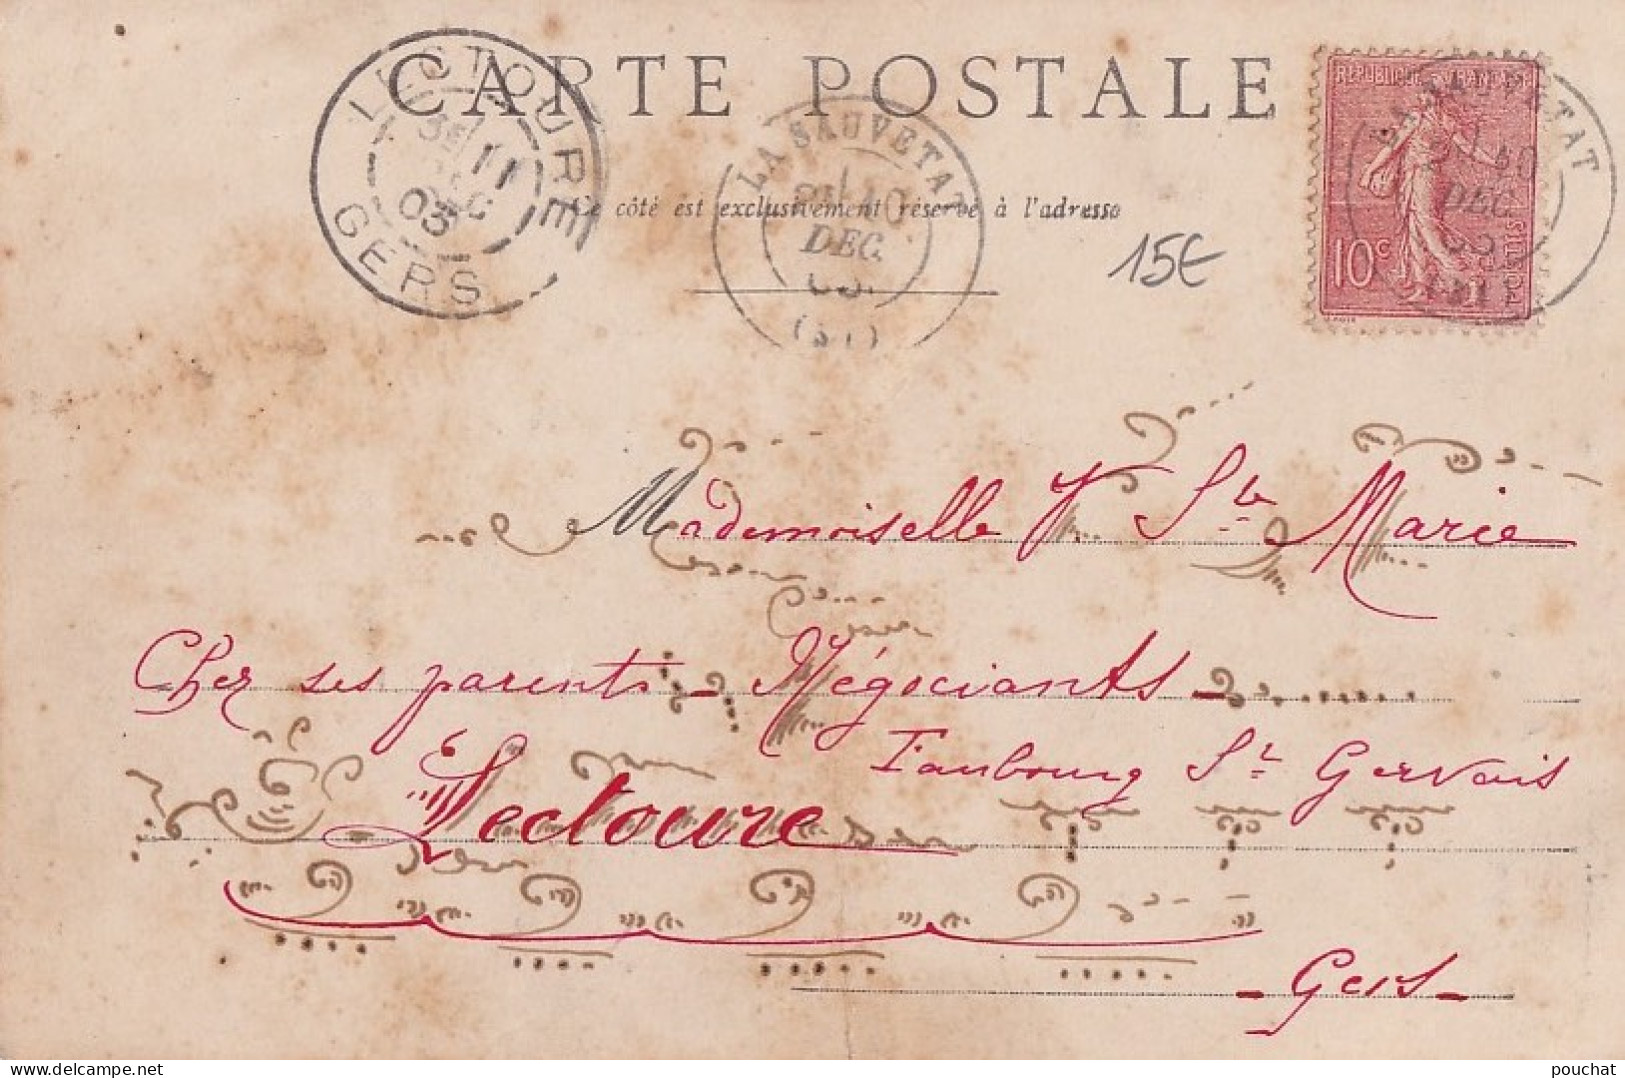 CARTE POSTALE
Ce côté est exclusivement réservé à l'adresse
LECTOURE
11
03
GERS
LA SAUVETAT
10
DEC.
03
(31)
REPUBLIQUE FRANÇAISE
POSTES
10c
LA SAUVETAT
DEC.
15€
Mademoiselle J. Ste Marie
Chez ses parents - Négociants -
Faubourg St Gervais
Lectoure
- Gers -
pouchat